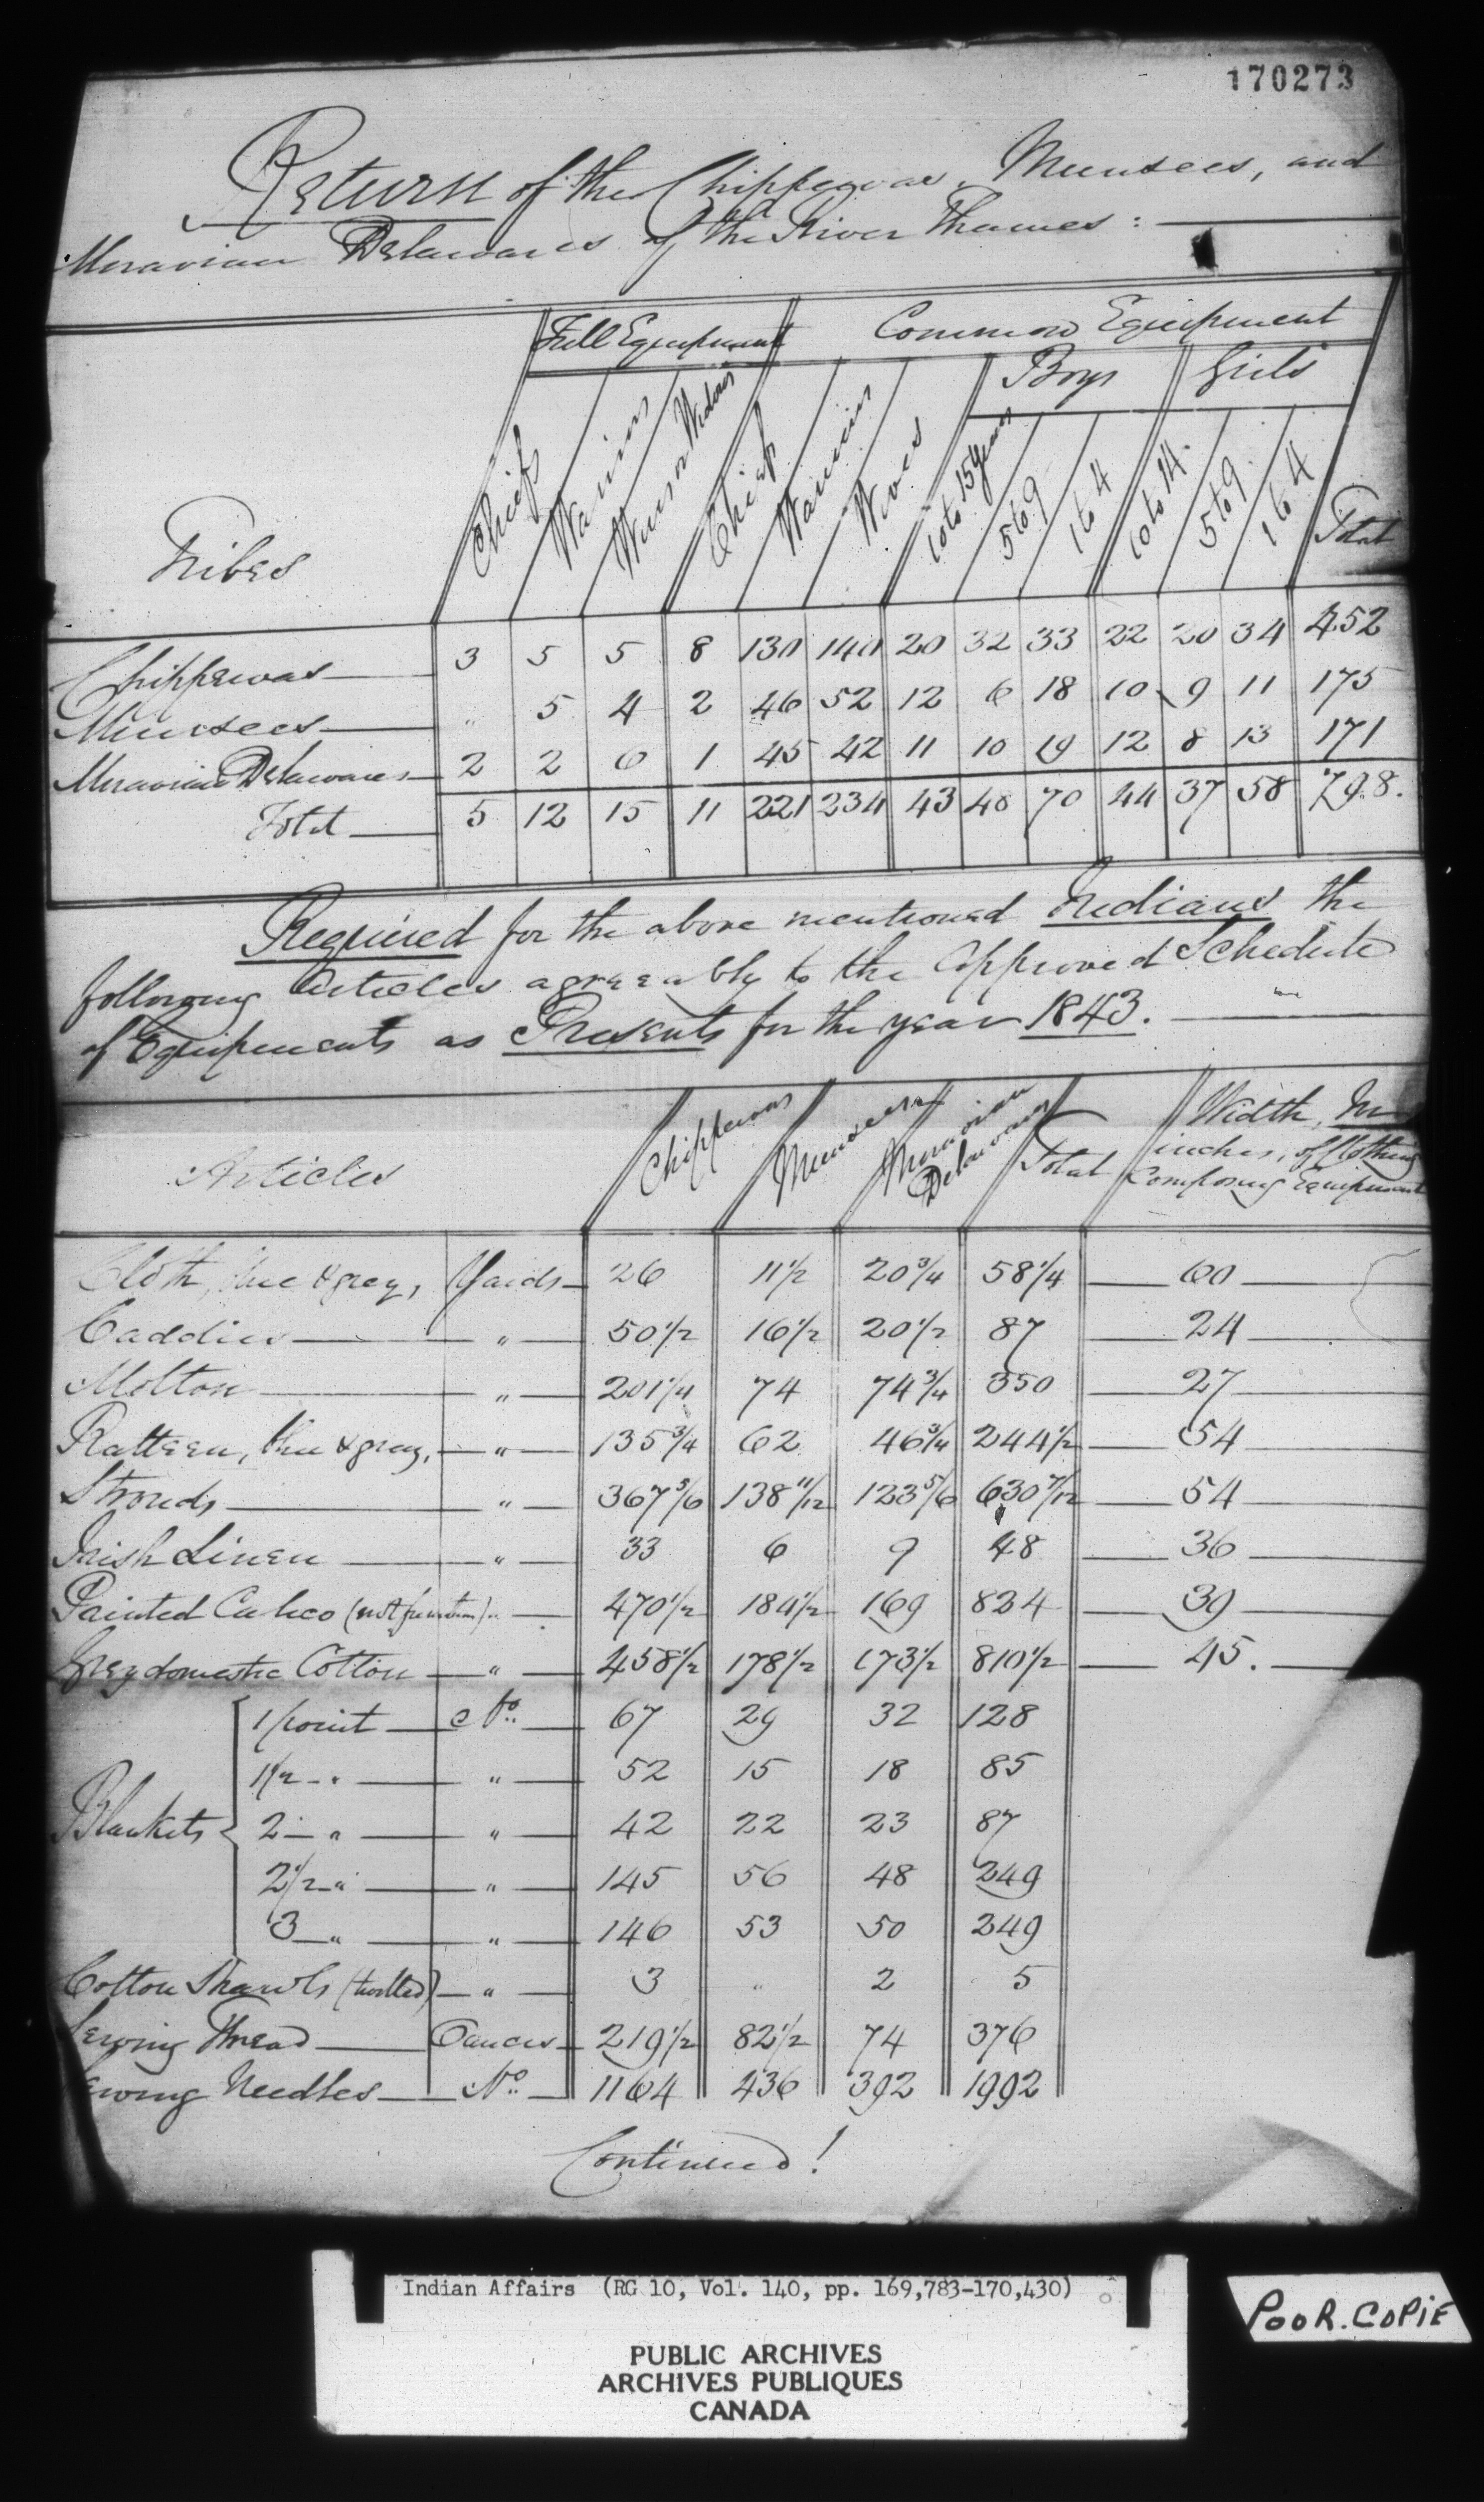 170273
Return of the Chippewas, Munsees, and
Moravian Delawares of the River Thames:
Full Equipment Common Equipment
Boys Girls
Tribes Chiefs Warriors Wives or Widows Chiefs Warriors Wives 10 to 15 years 5 to 9 1 to 4 10 to 14. 5 to 9. 1 to 4 Total
Chippewas 3 5 5 8 130 140 20 32 33 22 20 34 452
Munsees " 5 4 2 46 52 12 6 18 10 9 11 175
Moravian Delawares 2 2 6 1 45 42 11 10 19 12 8 13 171
Total 5 12 15 11 221 234 43 48 70 44 37 58 798.
Required for the above mentioned Indians the
following Articles agreeably to the Approved Schedule
of Equipments as Presents for the year 1843.
Articles Chippewas Munsees Moravian Delawares Total Width, In inches, of Clothing Composing Equipment
Cloth, blue & grey, Yards 26 11 1/2 20 3/4 58 1/4 60
Caddies " 50 1/2 16 1/2 20 1/2 87 24
Molton " 201 1/4 74 74 3/4 350 27
Ratteen, blue & gray, " 135 3/4 62 46 3/4 244 1/2 54
Strouds " 367 5/6 138 11/12 123 5/6 630 7/12 54
Irish Linen " 33 6 9 48 36
Painted Calico (not furniture) " 470 1/2 184 1/2 169 824 39
Grey domestic Cotton " 458 1/2 178 1/2 173 1/2 810 1/2 45.
Blankets
1 point No. 67 29 32 128
1 1/2 " " 52 15 18 85
2 " " 42 22 23 87
2 1/2 " " 145 56 48 249
3 " " 146 53 50 249
Cotton Shawls (twilled) " 3 " 2 5
Sewing Thread Ounces 219 1/2 82 1/2 74 376
Sewing Needles No. 1164 436 392 1992
Continued!
Indian Affairs (RG 10, Vol. 140, pp. 169,783-170,430)
PUBLIC ARCHIVES
ARCHIVES PUBLIQUES
CANADA
POOR.COPIE